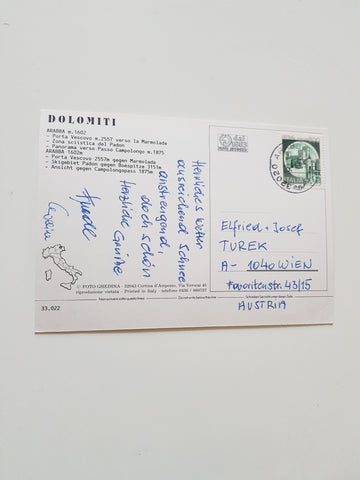 DOLOMITI
ARABBA m.1602
- Porta Vescovo m.2557 verso la Marmolada
- Zona sciistica del Padon
- Panorama verso Passo Campolongo m.1875
ARABBA 1602m
- Porta Vescovo 2557m gegen Marmolada
- Skigebiet Padon gegen Boèspitze 3151m
- Ansicht gegen Campolongopass 1875m
Herrliches Wetter
ausreichend Schnee
anstrengend,
doch schön
Herzliche Grüße
© FOTO GHEDINA - 32043 Cortina d'Ampezzo, Via
riproduzione vietata - Printed in Italy - telefono
33.022
32020 A
Elfried + Josef
TUREK
A - 1040 WIEN
Favoritenstr. 43/15
AUSTRIA